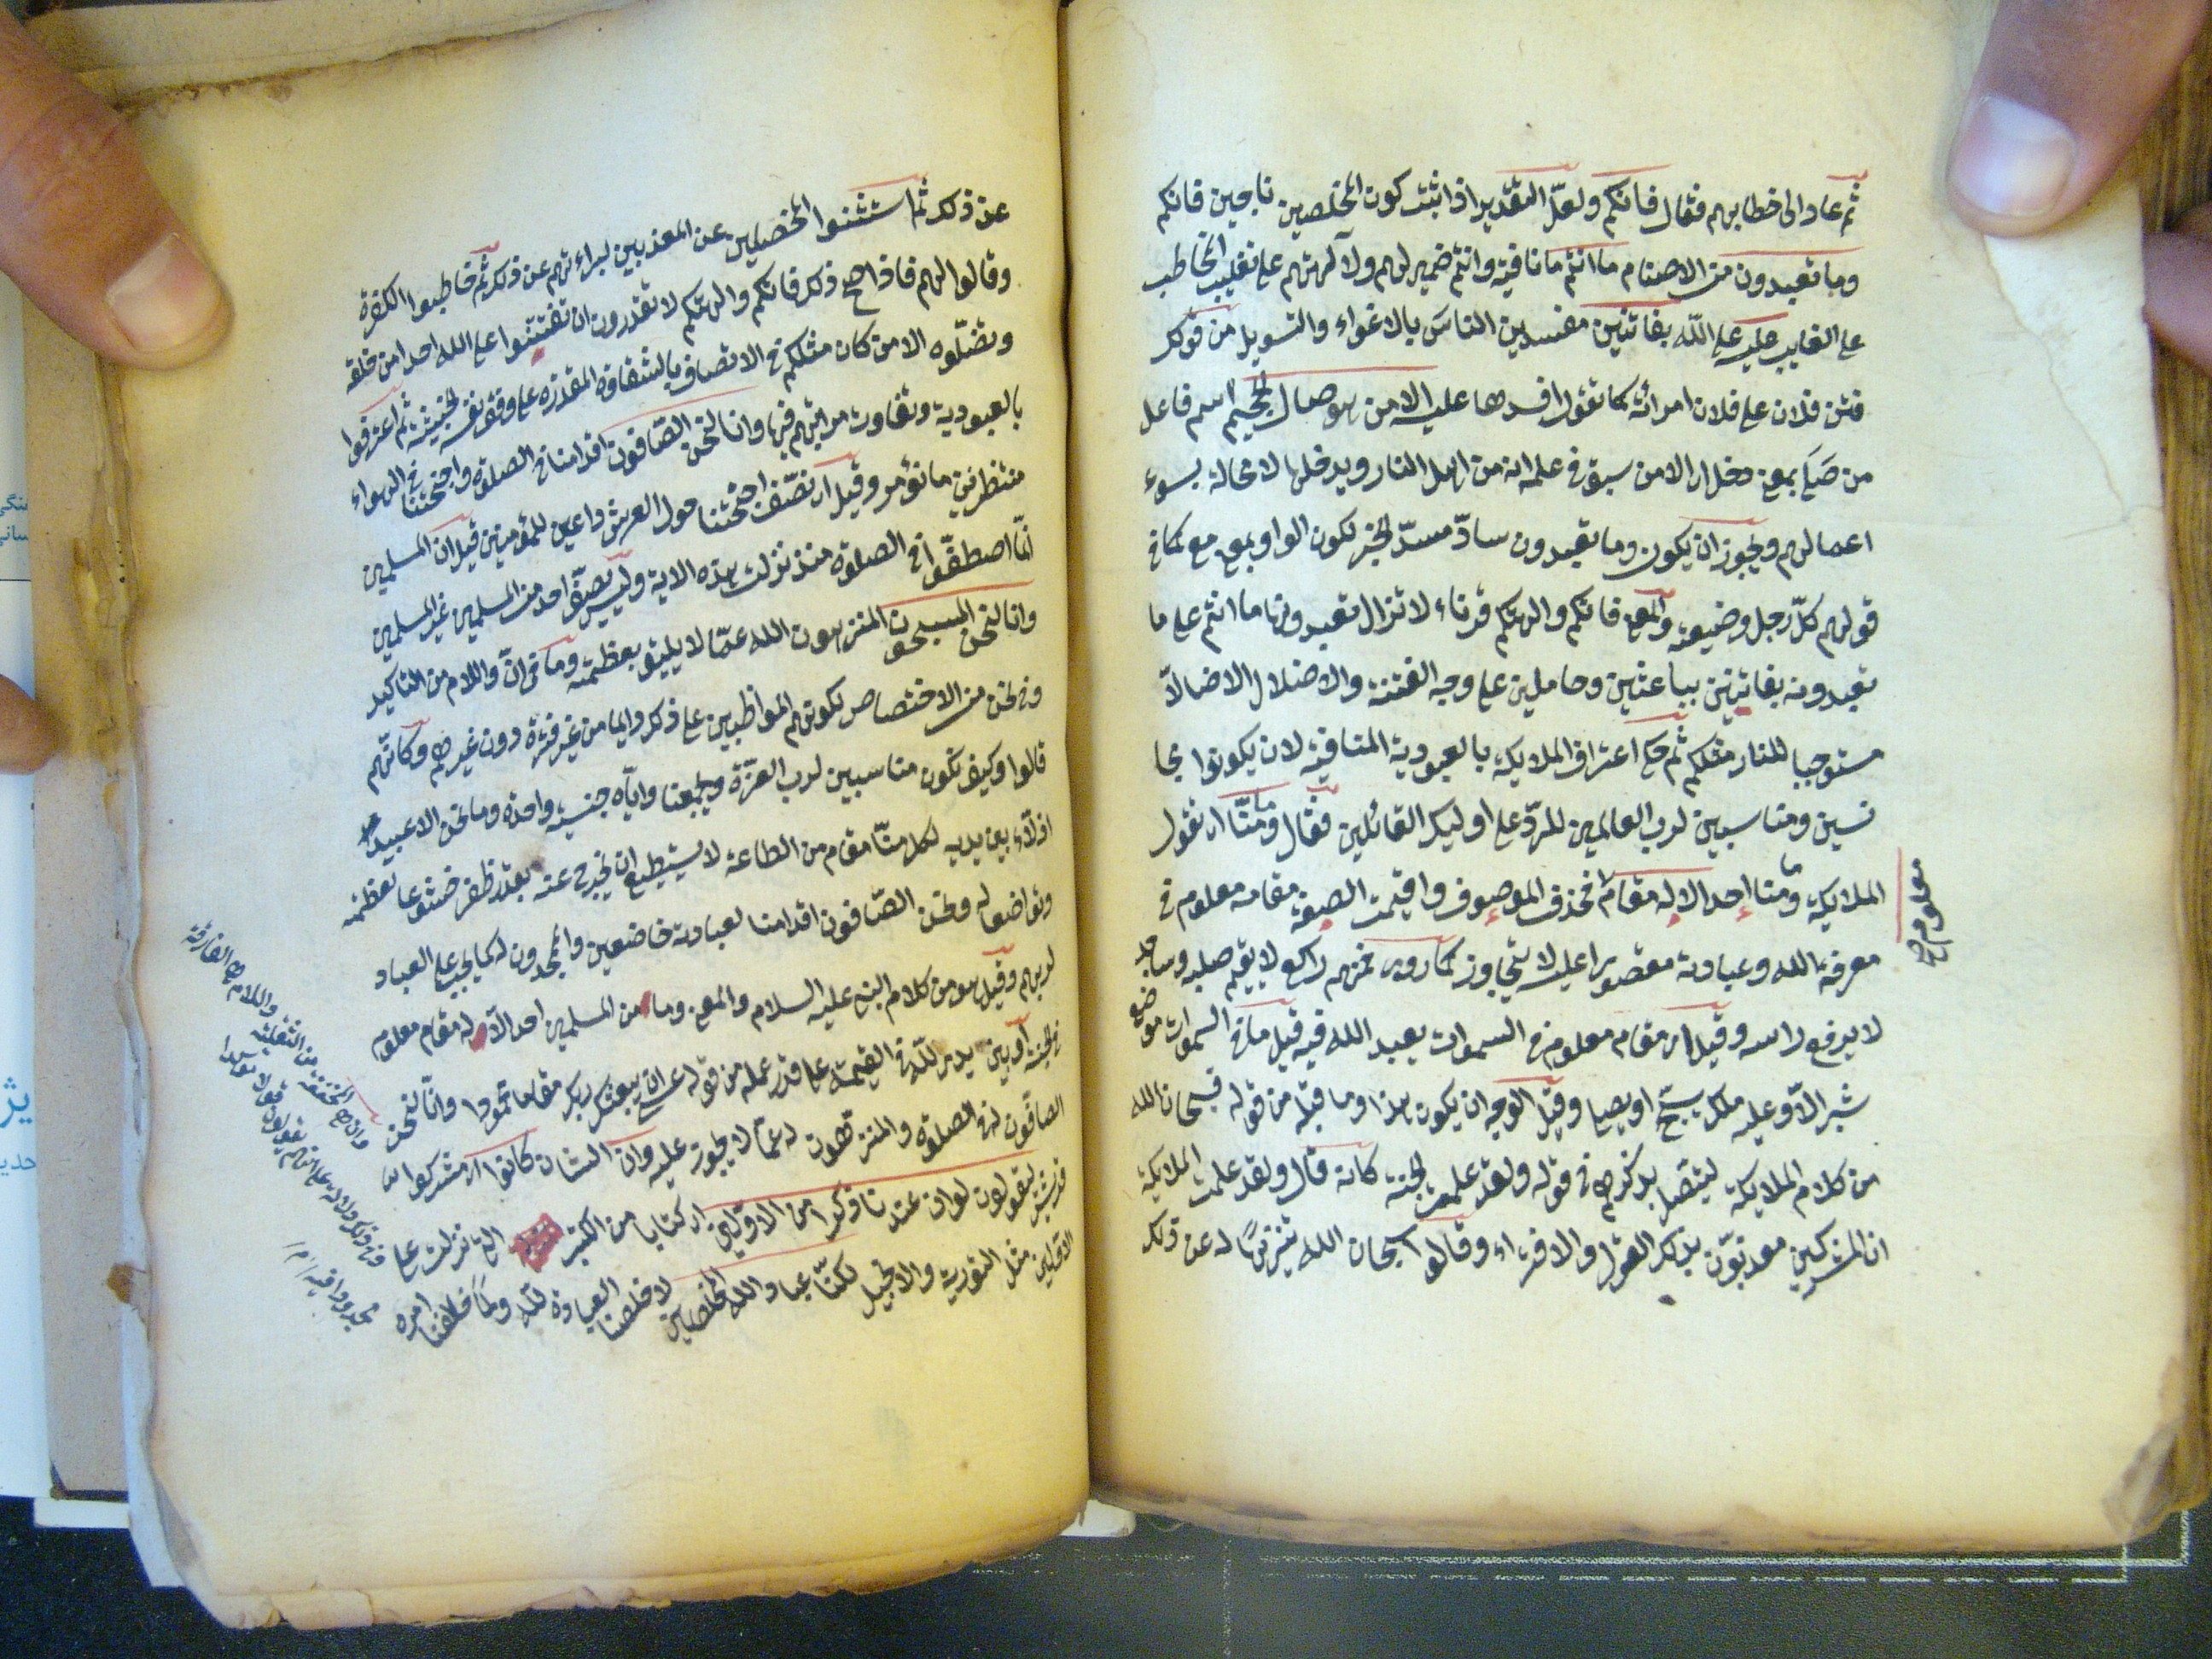 ثم عاد الى خطابهم فقال فانكم ولعل التقدير اذا ثبت كون المخلصين ناجين فانكم
وما تعبدون من الاصنام ما انتم ما نافية وانتم ضمير لهم ولآلهتهم على تغليب المخاطب
على الغايب عليه على الله بفاتنين مفسدين الناس بالاغواء والتسويل من قولك
فتن فلان على فلان امراته كما تقول افسدها عليه الا من هو صال الجحيم اسم فاعل
من صلى بمعنى دخل اى الا من سبق فى علمه انه من اهل النار ويدخلها لا محالة بسوء
اعمالهم ويجوز ان يكون وما تعبدون سادّ مسدّ الخبر لكون الواو بمعنى مع كما فى
قولهم كلّ رجل وضيعته والمعنى فانكم والهتكم قرناء لا تزال تعبدونها ما انتم على ما
تعبدونه بفاتنين بباعثين وحاملين على وجه الفتنة والاضلال الا ضالا
مستوجبا للنار مثلكم ثم حكى اعتراف الملايكة بالعبودية المنافية لان يكونوا بحا
نسين ومناسبين لرب العالمين للردّ على اوليك القائلين فقال وما منّا اى نقول
الملايكة وما منا احد الا له مقام فحذف الموصوف واقيمت الصفة مقامه معلوم فى
معلوم صح
معرفة الله وعبادته مقصورا عليه لا يتجاوز كما روى فمنهم راكع لا يقيم صلبه وساجد
لا يرفع راسه وقيل اى مقام معلوم فى السموات يعبد الله فيه قيل ما فى السموات موضع
شبر الا وعليه ملك يسبّح او يصلى وقيل الوجه ان يكون هذا وما قبله من قوله فسبحان الله
من كلام الملايكة ليتصل بذكرهم فى قوله ولقد علمت الجنة كانه قال ولقد علمت الملايكة
ان المشركين معذبون بذكر القول والافتراء وقالوا سبحان الله تنزيها له عن ذلك
عن ذلك ثم استثنوا المخلصين عن المعذبين لبراءتهم عن ذلك ثم خاطبوا الكفرة
وقالوا لهم فاذا صح ذلك فانكم والهتكم لا تقدرون ان تفتنوا على الله احدا من خلقه
وتضلّوه الا من كان مثلكم فى الاتصاف بالشقاوة المقدرة على وفق نفسه الخبيثة ثم اعترفوا
بالعبودية وتفاوت مراتبهم فيها وانا لنحن الصافون اقدامنا فى الصلوة واجنحتنا فى الهواء
منتظرين ما نؤمر وقيل اى نصفّ اجنحتنا حول العرش داعين للمؤمنين قيل ان المسلمين
انما اصطفّوا فى الصلوة منذ نزلت هذه الاية وليس يصفّ احد من المسلمين غير المسلمين
وانا لنحن المسبحون المنزهون الله عمّا لا يليق بعظمته وما فى انّ واللام من التاكيد
وفى نحن من الاختصاص لكونهم المواظبين على ذكر دايما من غير فترة دون غيرهم وكانّهم
قالوا وكيف نكون مناسبين لرب العزّة ويجمعنا وايّاه جنسية واحدة وما نحن الا عبيد
اذلاء بين يديه لكل منّا مقام من الطاعة لا يستطيع ان يخرج عنه بقدر ظفر خشوعا لعظمته
وتواضعا له ونحن الصافون اقدامنا لعبادته خاضعين والمجدون له كما يجب على العباد
لربهم وقيل هو من كلام النبى عليه السلام والمعنى وما من المسلمين احد الا له مقام معلوم
فى الجنة او بين يدى الله فى القيمة على قدر عمله من قوله عسى ان يبعثك ربك مقاما محمودا وانا لنحن
الصافون له فى الصلوة والمنزهون له عمّا لا يجوز عليه وان الشان كانوا اى مشركوا
قريش ليقولون لو ان عندنا ذكرا من الاولين اى كتابا من الكتب التى نزلت على
الاولين مثل التورية والانجيل لكنّا عباد الله المخلصين لاخلصنا العبادة لله ولما خالفنا امره
وان هى المخففة من الثقيلة واللام هى الفارقة
وفى ذلك دلالة على انهم يقولون قولا مؤكدا
مجدودا فيه